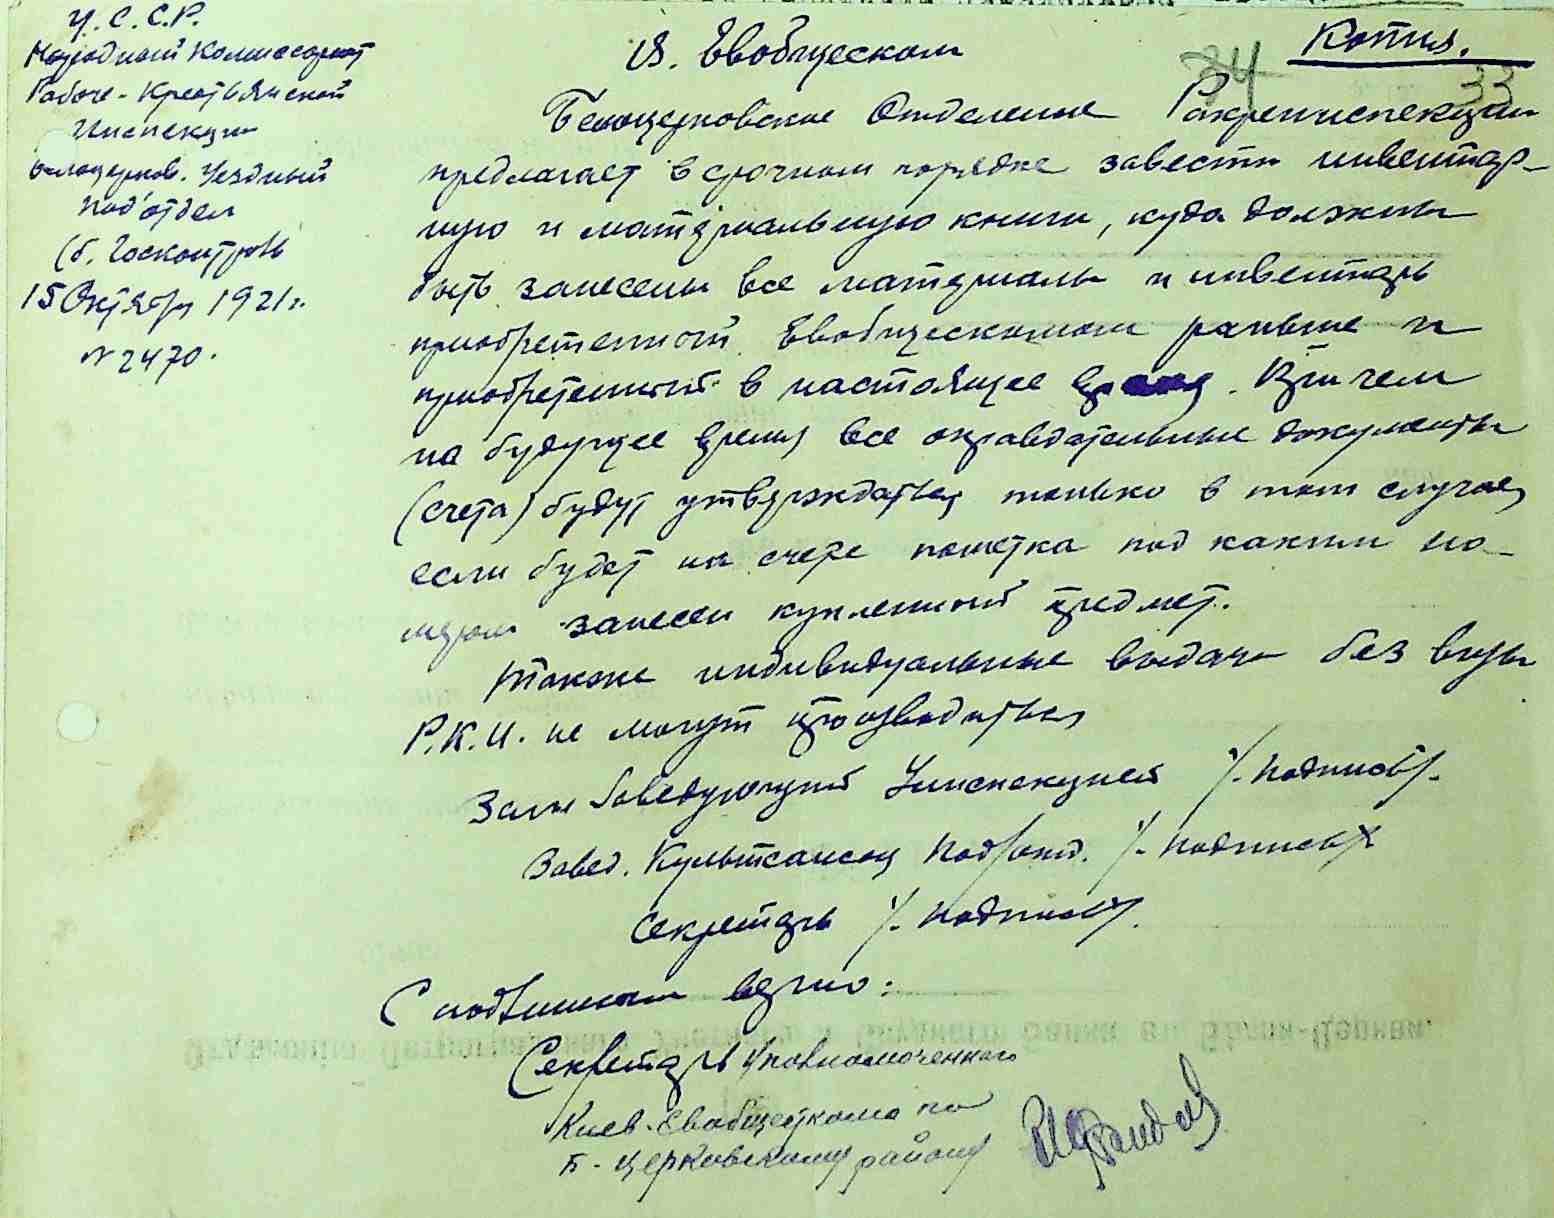 У.С.С.Р.
Народный Комиссариат
Рабоче-Крестьянской
Инспекции
Белоцерков. Уездный
под'отдел
(б. Госконтроль
15 Октября 1921 г.
№ 2470.
Копия.
34
33
В. Евобщеском
Белоцерковское Отделение Рабкрепинспекции
предлагает в срочном порядке завести инвентар-
ную и материальную книги, куда должны
быть занесены все материалы и инвентарь
приобретенный Евобщескомом раньше и
приобретенный в настоящее время. Причем
на будущее время все оправдательные документы
(счета) будут утверждаться только в том случае,
если будет на счете пометка под каким но-
мером занесен купленный предмет.
Также индивидуальные выдачи без визы
Р.К.И. не могут производиться
Зам Заведующий Уинспекцией /-подпись/-
Завед. Культсансоц под'отд. /-подпись/-
Секретарь /-подпись/.
С подлинным верно:
Секретарь Уполномоченного
Киев-Евобщесткома по
Б-Церковскому району